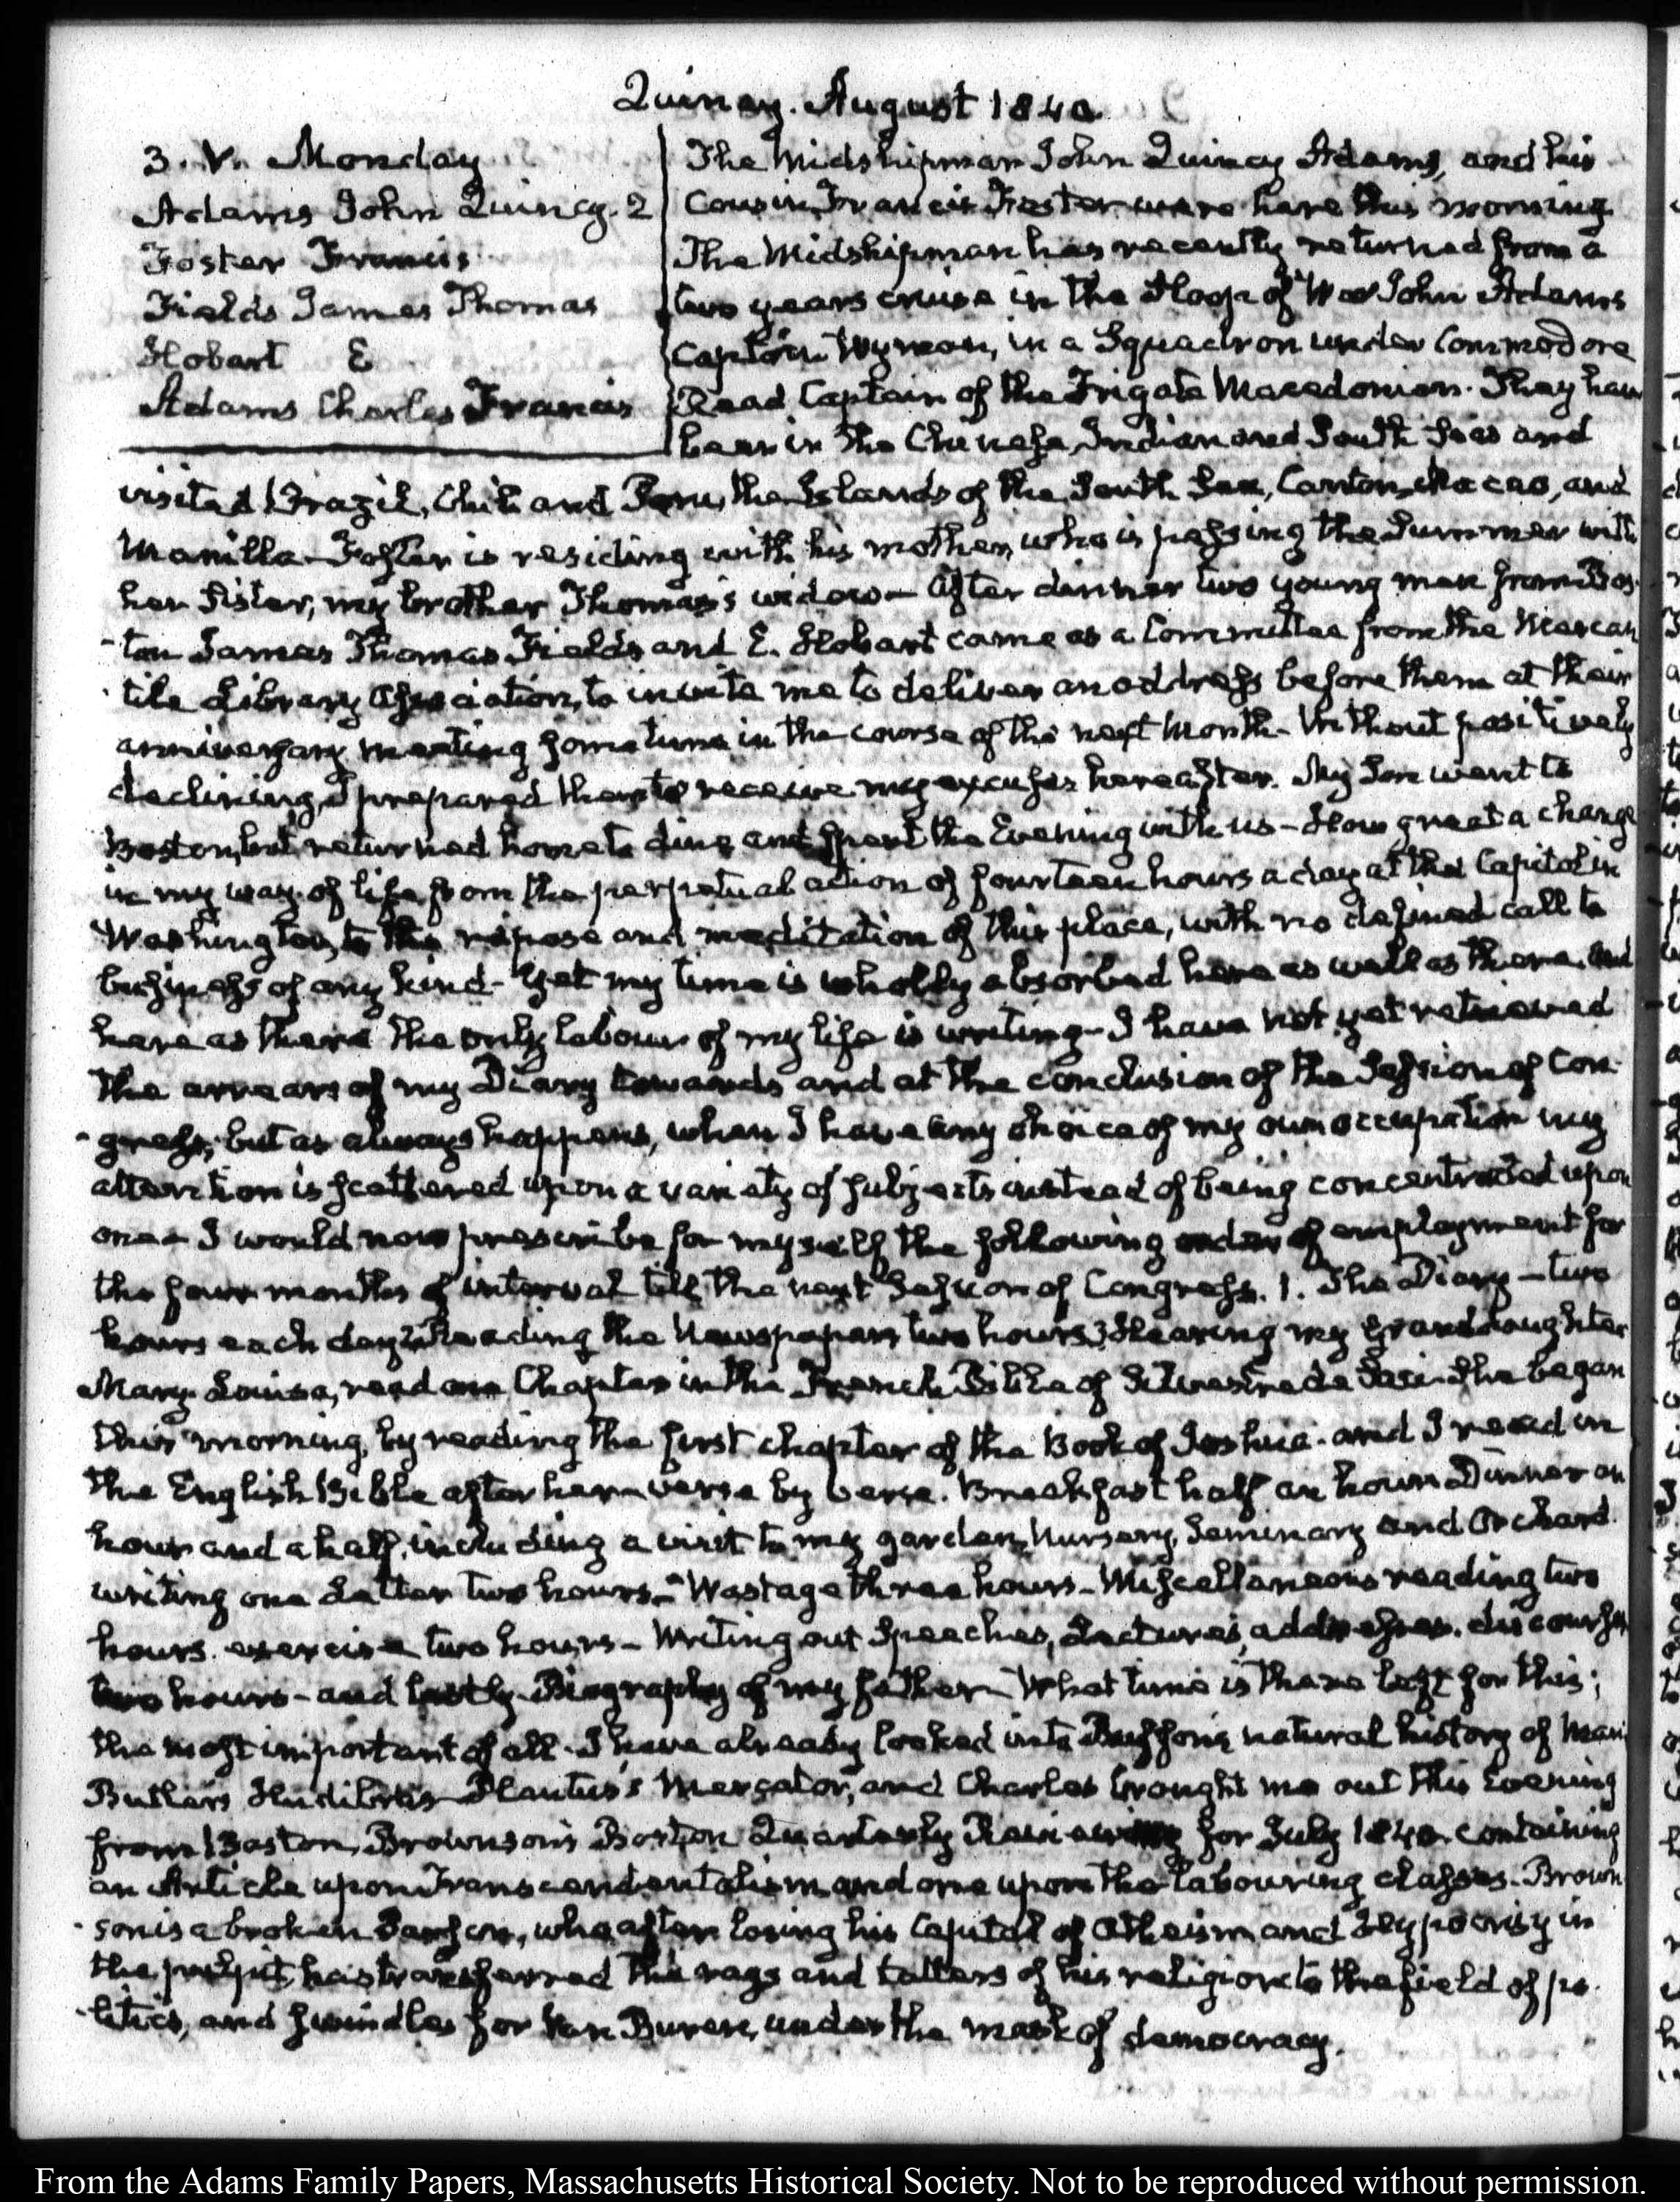 Quincy. August 1840.
3. V. Monday
Adams John Quincy. 2
Foster Francis
Fields James Thomas
Hobart E
Adams Charles Francis
The Midshipman John Quincy Adams, and his
Cousin Francis Foster were here this morning
The Midshipman has recently returned from a
two years cruise in the Sloop of War John Adams
Captain Wyman, in a Squadron under Commodore
Read Captain of the Frigate Macedonian. They have
been in the Chinese, Indian and South Seas and
visited Brazil, Chili and Peru, the Islands of the South Sea, Canton, Macao, and
Manilla— Foster is residing with his mother, who is passing the Summer with
her Sister, my brother Thomas's widow— After dinner two young men from Bos-
-ton James Thomas Fields and E. Hobart came as a Committee from the Mercan
tile Library Association, to invite me to deliver an address before them at their
anniversary meeting sometime in the course of the next Month— Without positively
declining, I prepared them to receive my excuses hereafter. My Son went to
Boston, but returned home to dine and spent the Evening with us— How great a change
in my way of life from the perpetual action of fourteen hours a day at the Capitol in
Washington, to the repose and meditation of this place, with no defined call to
business of any kind— Yet my time is wholly absorbed here as well as there. And
here as there the only labour of my life is writing— I have not yet retrieved
the arrears of my Diary towards and at the conclusion of the Session of Con-
-gress; but as always happens, when I have any choice of my own occupation my
attention is scattered upon a variety of subjects instead of being concentrated upon
one— I would now prescribe for myself the following order of employment for
the four months of interval till the next Session of Congress. 1. The Diary— two
hours each day 2. Reading the Newspapers two hours, 3. Hearing my Granddaughter
Mary Louisa, read one Chapter in the French Bible of Silvestre de Saci. She began
this morning, by reading the first chapter of the Book of Joshua. and I read in
the English Bible after her— verse by verse. Breakfast half an hour Dinner an
hour and a half, including a visit to my garden, Nursery, Seminary and Orchard.
writing one Letter two hours.— Wastage three hours— Miscellaneous reading two
hours. exercise two hours— Writing out Speeches, Lectures, addresses. discourses
two hours— and lastly Biography of my father— What time is there left for this;
the most important of all. I have already looked into Buffon's natural history of Man
Butler's Hudibras Plautus's Mercator, and Charles brought me out this Evening
from Boston, Brownson's Boston Quarterly Review for July 1840. containing
an Article upon Transcendentalism and one upon the labouring classes. Brown
-son is a broken Parson, who after losing his Capital of Atheism and Hypocrisy in
the pulpit, has transferred the rags and tatters of his religion to the field of po-
-litics, and swindles for Van Buren, under the mask of democracy.
From the Adams Family Papers, Massachusetts Historical Society. Not to be reproduced without permission.